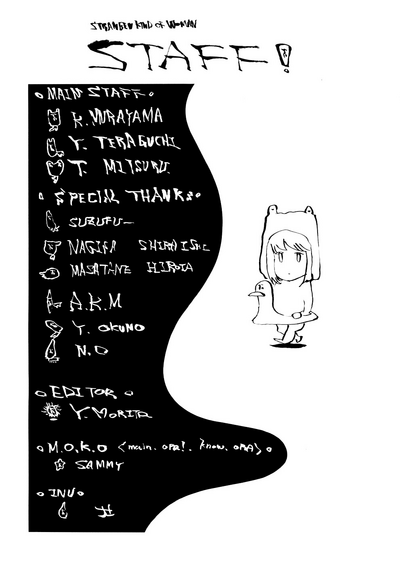 STRANGER KIND of WOMAN
STAFF!
MAIN STAFF
K. MURAYAMA
Y. TERAGUCHI
T. MITSURU.
SPECIAL THANKS
SUBUFU—
NAGISA
MASATANE HIROTA
A.K.M
Y. OKUNO
N.O
EDITOR
Y. MORITA
M.O.K.O
SAMMY
INU